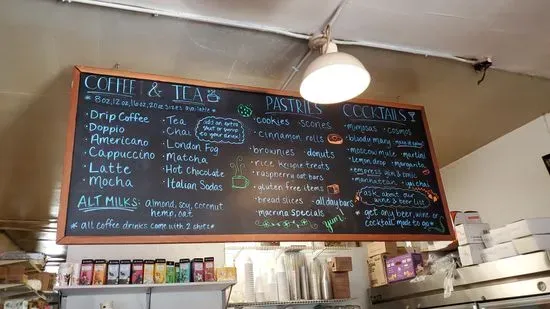 COFFEE & TEA
* 8oz, 12oz, 16oz, 20oz sizes available *
• Drip Coffee
• Doppio
• Americano
• Cappuccino
• Latte
• Mocha
• Tea
• Chai
• London Fog
• Matcha
• Hot Chocolate
• Italian Sodas
add an extra
shot or pump to
your drink!
ALT MILKS: almond, soy, coconut
hemp, oat
* all coffee drinks come with 2 shots *
PASTRIES
• cookies • scones
• cinnamon rolls
• brownies • donuts
• rice krispie treats
• raspberry oat bars
• gluten free items
• bread slices • all day bars
• macrina specials
yum!
COCKTAILS
• mimosas • cosmos
• bloody mary
• moscow mule • martini
• lemon drop • margarita
• empress gin & tonic
• manhattan
* ask about our
wine & beer list
* get any beer, wine or
cocktail made to go *